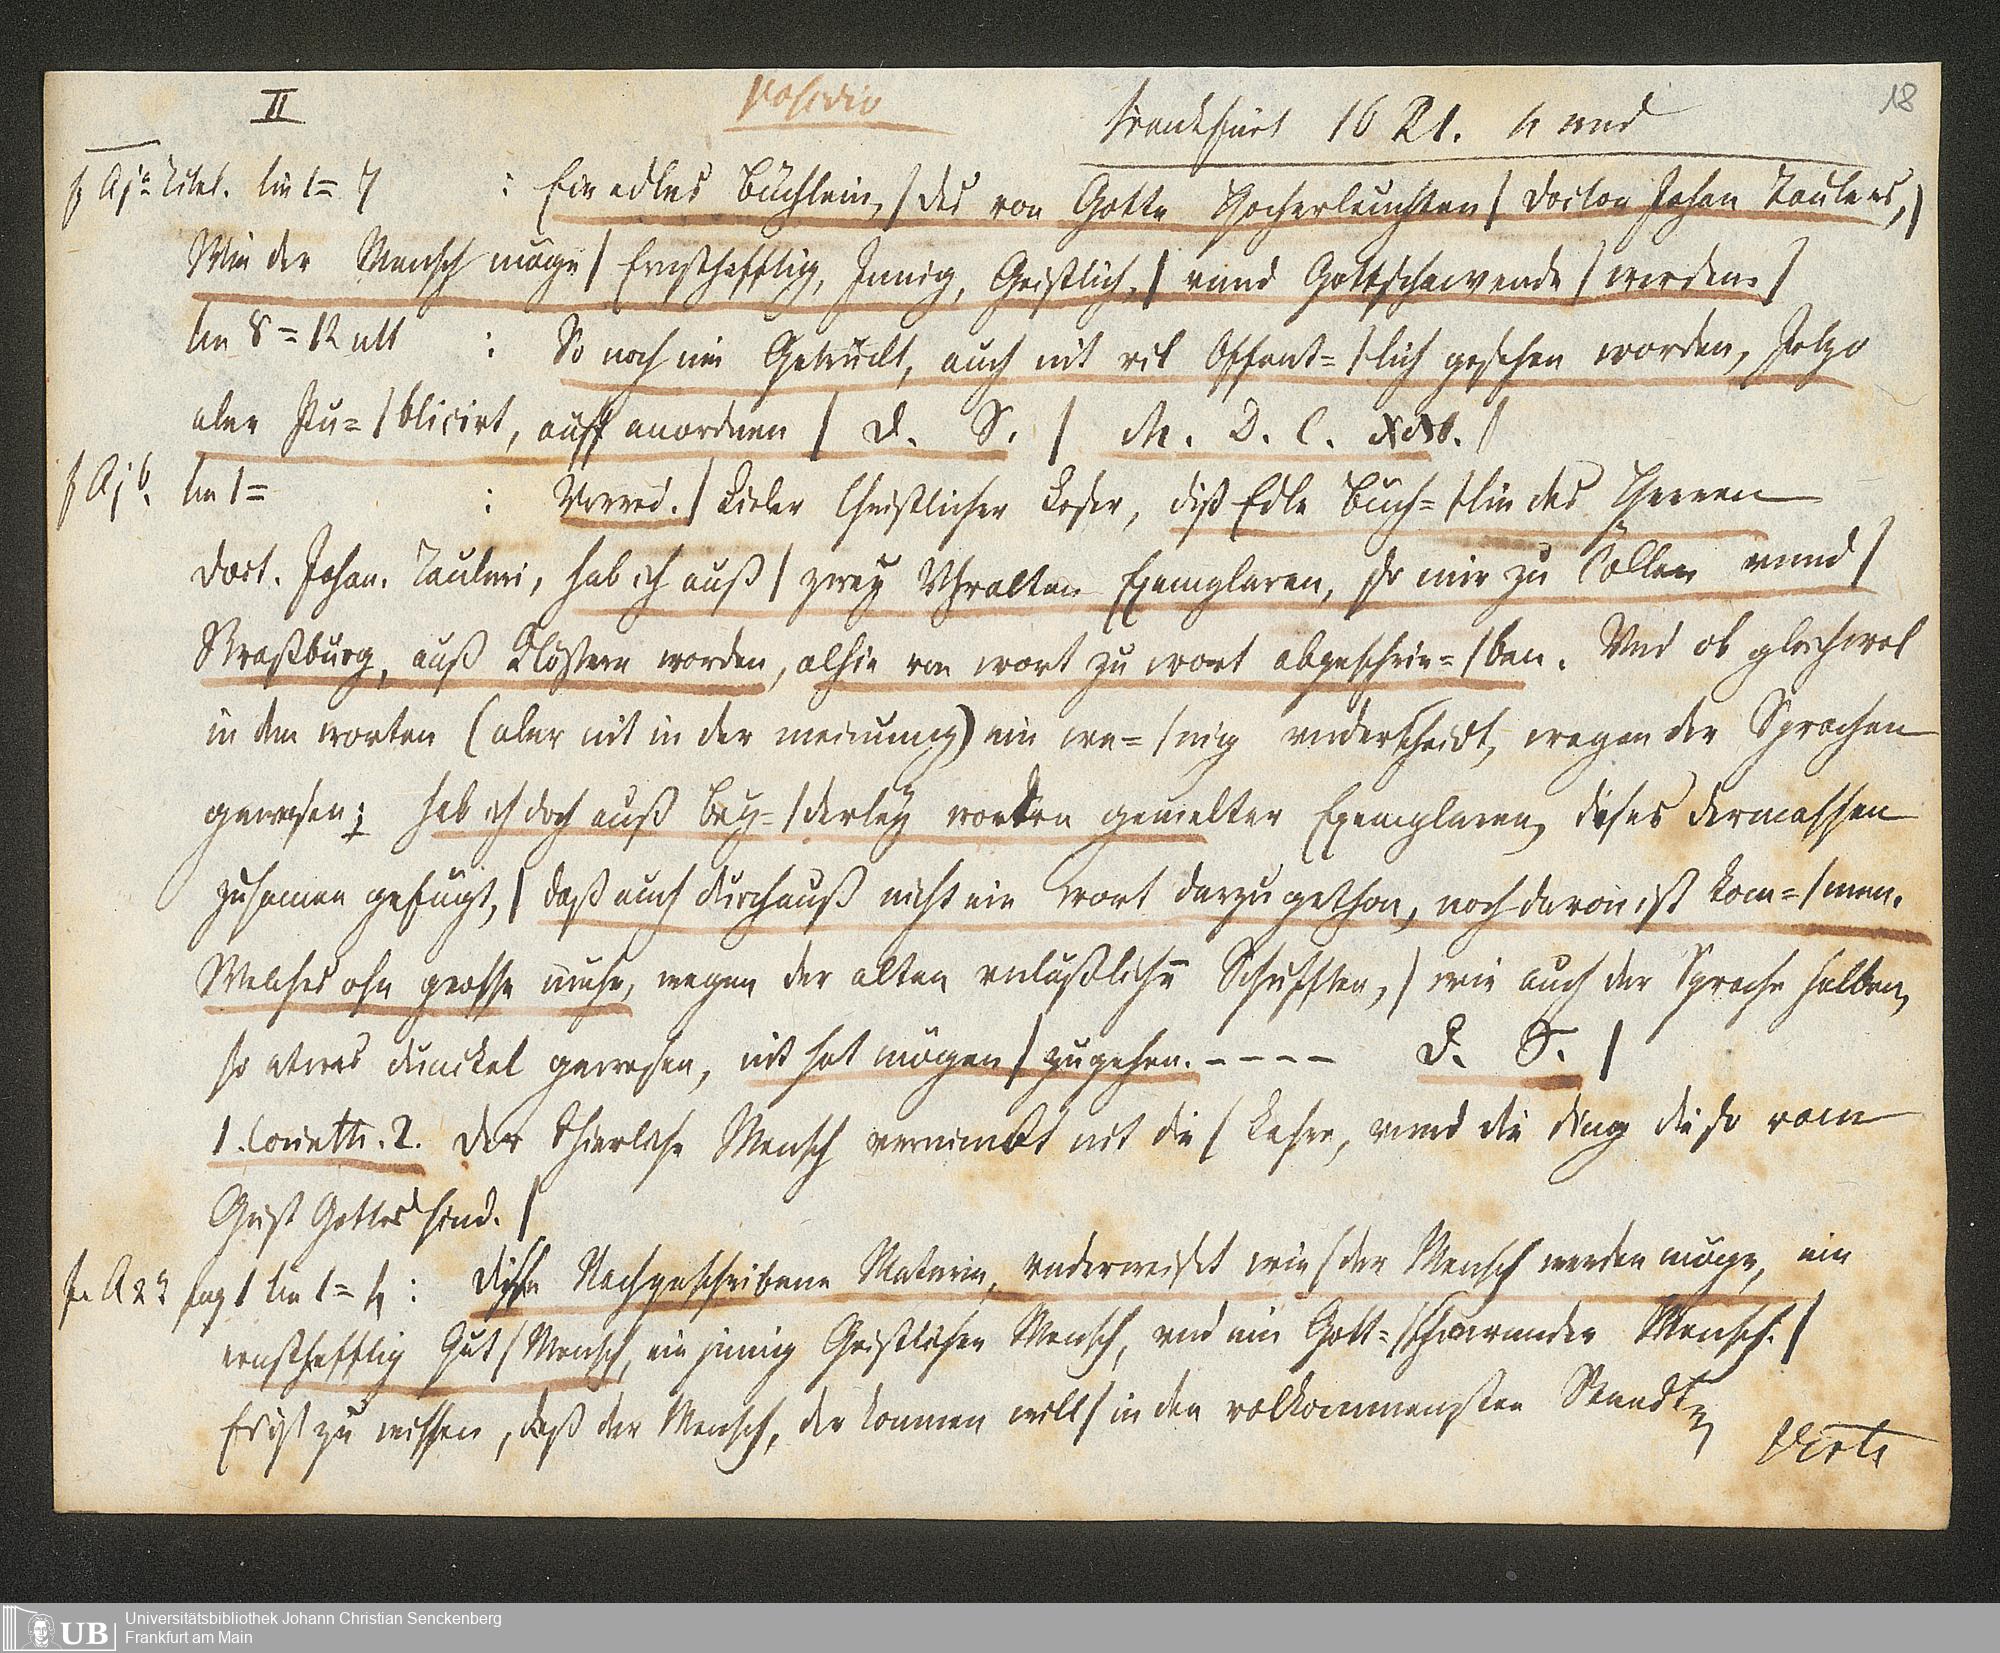 II
Frankfurt 1621. 4
18
f Aja Titel. lin 1=7 : Ein edles Büchlein, / des von Gotte Hocherleuchten / Doctor Johan Taulers, /
Wie der Mensch möge / Ernsthafftig, Innig, Geistlich, / vnnd Gottschawende / werden. /
lin 8=12 : So noch nie Getruckt, auch nit vil Offent= / lich gesehen worden, Jetzo
aber Pu= / blicirt, auff anordnen / D. S. / M. D. C.
f Ajb. lin 1= : Vorred. / Lieber Christlicher Leser, diß Edle Büch= / lin des Herren
Doct. Johan. Tauleri, hab ich auß / zwey Vhralten Exemplaren, so mir zu Cöllen vnnd /
Straßburg, auß Klöstern worden, alhie von wort zu wort abgeschrie= / ben. Vnd ob gleichwol
in den worten (aber nit in der meinung) ein we= / nig vnderscheidt, wegen der Sprachen
gewesen; hab ich doch auß bey= / derley worten gemelter Exemplaren, dises dermassen
zusamen gefügt, / daß auch durchauß nicht ein wort darzu gethon, noch daruon ist kom= / men.
Welches ohn grosse mühe, wegen der alten vnläßlichē Schrifften, / wie auch der Sprache halben,
so etwas dunckel gewesen, nit hat mögen / zugehen. - - - - D. S. /
1. Corinth. 2. Der thierlich Mensch vernimbt nit die / Lehre, vnnd die ding die so vom
Geist Gottes sind. /
f. A2a pag 1 lin 1=4 : Diese Nachgeschribene Materia, vnderweiset wie / der Mensch werden möge, ein
ernsthafftig Gut / Mensch, ein jnnig Geistlicher Mensch, vnd ein Gott= / schawender Mensch. /
Es ist zu wissen, daß der Mensch, der kommen will / in den volkommensten Standt
Verte
UB
Universitätsbibliothek Johann Christian Senckenberg
Frankfurt am Main